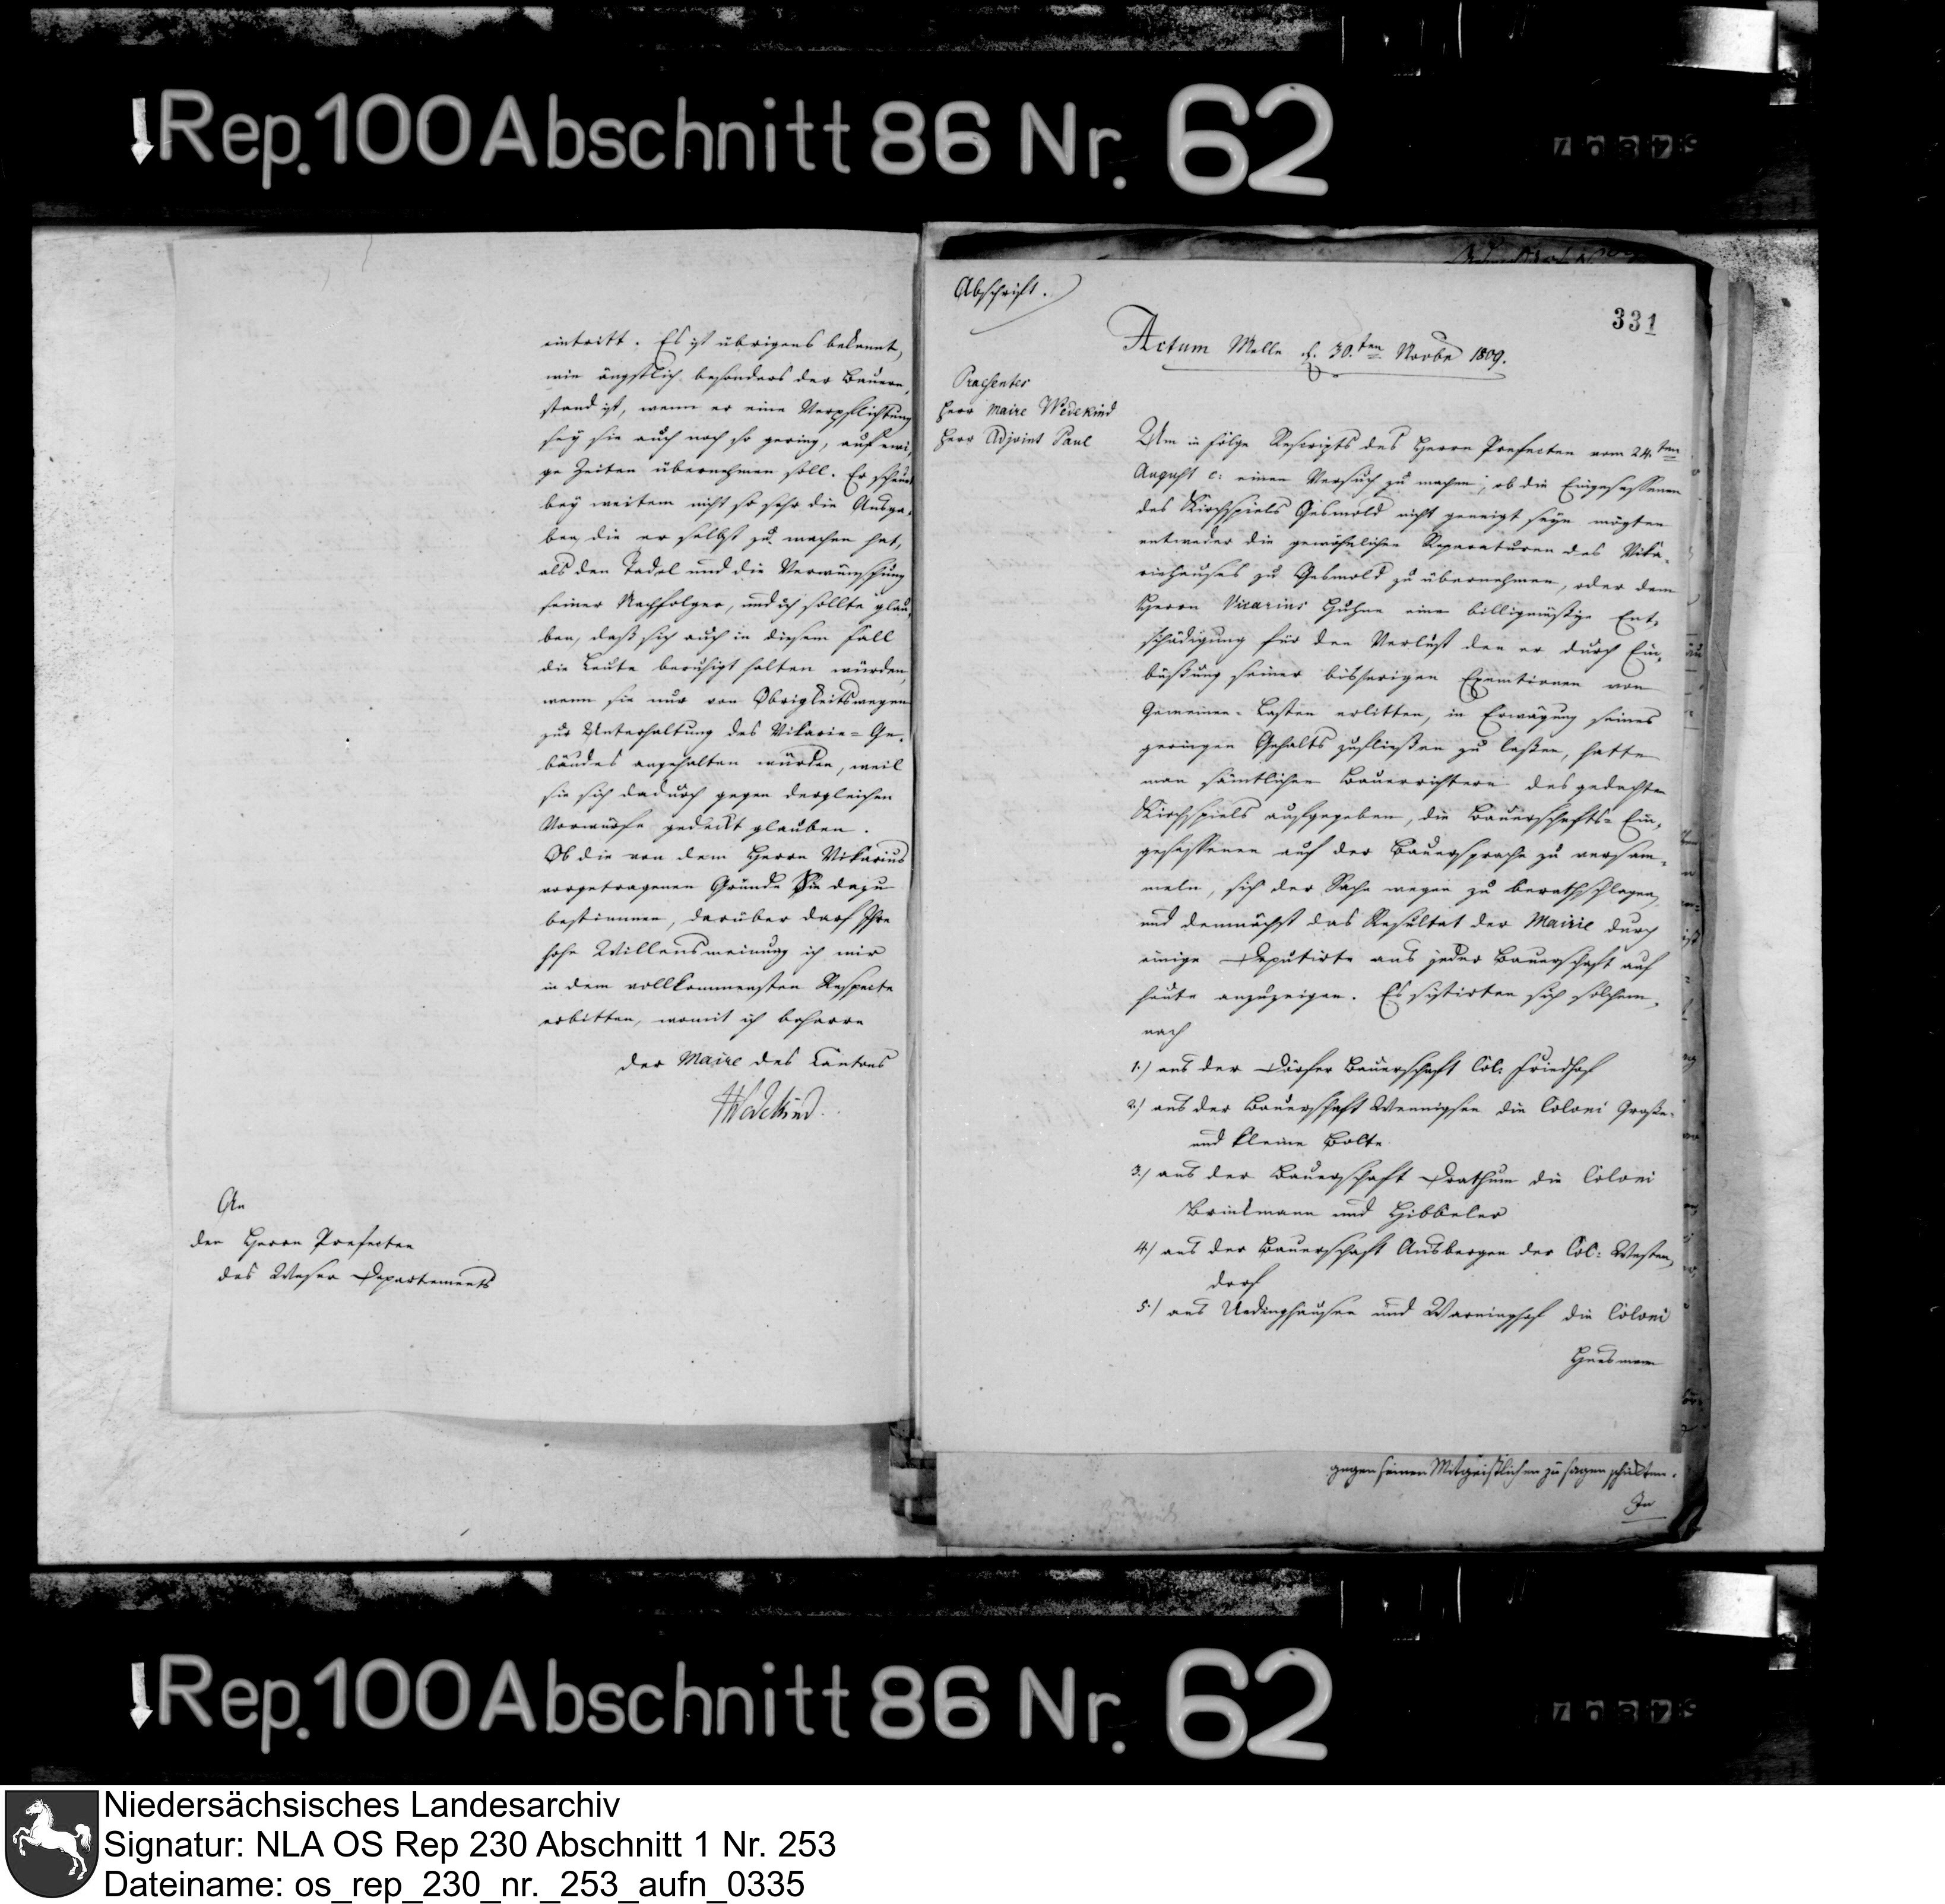 Rep. 100 Abschnitt 86 Nr. 62
eintritt. Es ist übrigens bekannt,
wie ängstlich besonders der Bauern
stand ist, wenn er eine Verpflichtung
sey sie auch noch so gering, auf ewi,
ge Zeiten übernehmen soll. Er scheut
bey weitem nicht so sehr die Ausga,
ben, die er selbst zu machen hat,
als den Tadel und die Verwünschung
seiner Nachfolger, und ich sollte glau,
ben, daß sich auch in diesem Fall
die Leute beruhigt halten würden,
wenn sie nur von Obrigkeitswegen
zur Unterhaltung des Vikarie-Ge,
bäudes angehalten würden, weil
sie sich dadurch gegen dergleichen
Vorwürfe gedeckt glauben.
Ob die von dem Herrn Vikarius
vorgetragenen Gründe Sie dazu
bestimmen, darüber darf Ihre
hohe Willensmeinung ich mir
in dem vollkommensten Respecte
erbitten, womit ich beharre
der Maire des Cantons
Wedekind.
An
den Herrn Prefecten
des Weser Departements
Abschrift.
331
Actum Melle d. 30.ten Novbr 1809.
Praesentes
Herr Maire Wedekind
Herr Adjoint Paul
Um in Folge Rescripts des Herrn Prefecten vom 24.ten
August c: einen Versuch zu machen, ob die Eingesessenen
des Kirchspiels Gesmold nicht geneigt seyn mögten
entweder die gewöhnlichen Reparaturen des Vika-
riehauses zu Gesmold zu übernehmen, oder dem
Herrn Vicarius Huhne eine billigmäßige Ent,
schädigung für den Verlust den er durch Ein,
büßung seiner bisherigen Exemtionen von
Gemeinen-Lasten erlitten, in Erwägung seines
geringen Gehalts zufließen zu laßen, hatte
man sämtlichen Bauerrichtern des gedachten
Kirchspiels aufgegeben, die Bauerschafts-Ein,
gesessenen auf der Bauersprache zu versam-
meln, sich der Sache wegen zu berathschlagen,
und demnächst das Resultat der Mairie durch
einige Deputirte aus jeder Bauerschaft auf
heute anzuzeigen. Es sistirten sich solchem,
nach
1.) aus der Dorfer Bauerschaft Col. Friedhof
2.) aus der Bauerschaft Wennigsen die Coloni Große-
und kleine Bolte
3.) aus der Bauerschaft Drathum die Coloni
Brinkmann und Hibbeler
4.) aus der Bauerschaft Ausbergen der Col: Westen,
dorf
5.) aus Uedinghausen und Warninghof die Coloni
Huesmann
gegen seinen Mitgeistlichen zu sagen schuldten.
In
Rep. 100 Abschnitt 86 Nr. 62
Niedersächsisches Landesarchiv
Signatur: NLA OS Rep 230 Abschnitt 1 Nr. 253
Dateiname: os_rep_230_nr._253_aufn_0335